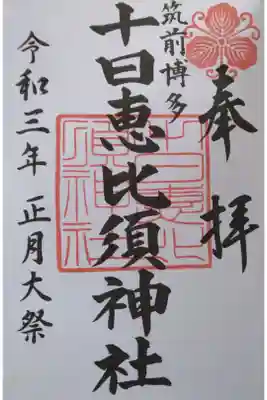 奉拝
筑前博多
十日恵比須神社
令和三年 正月大祭